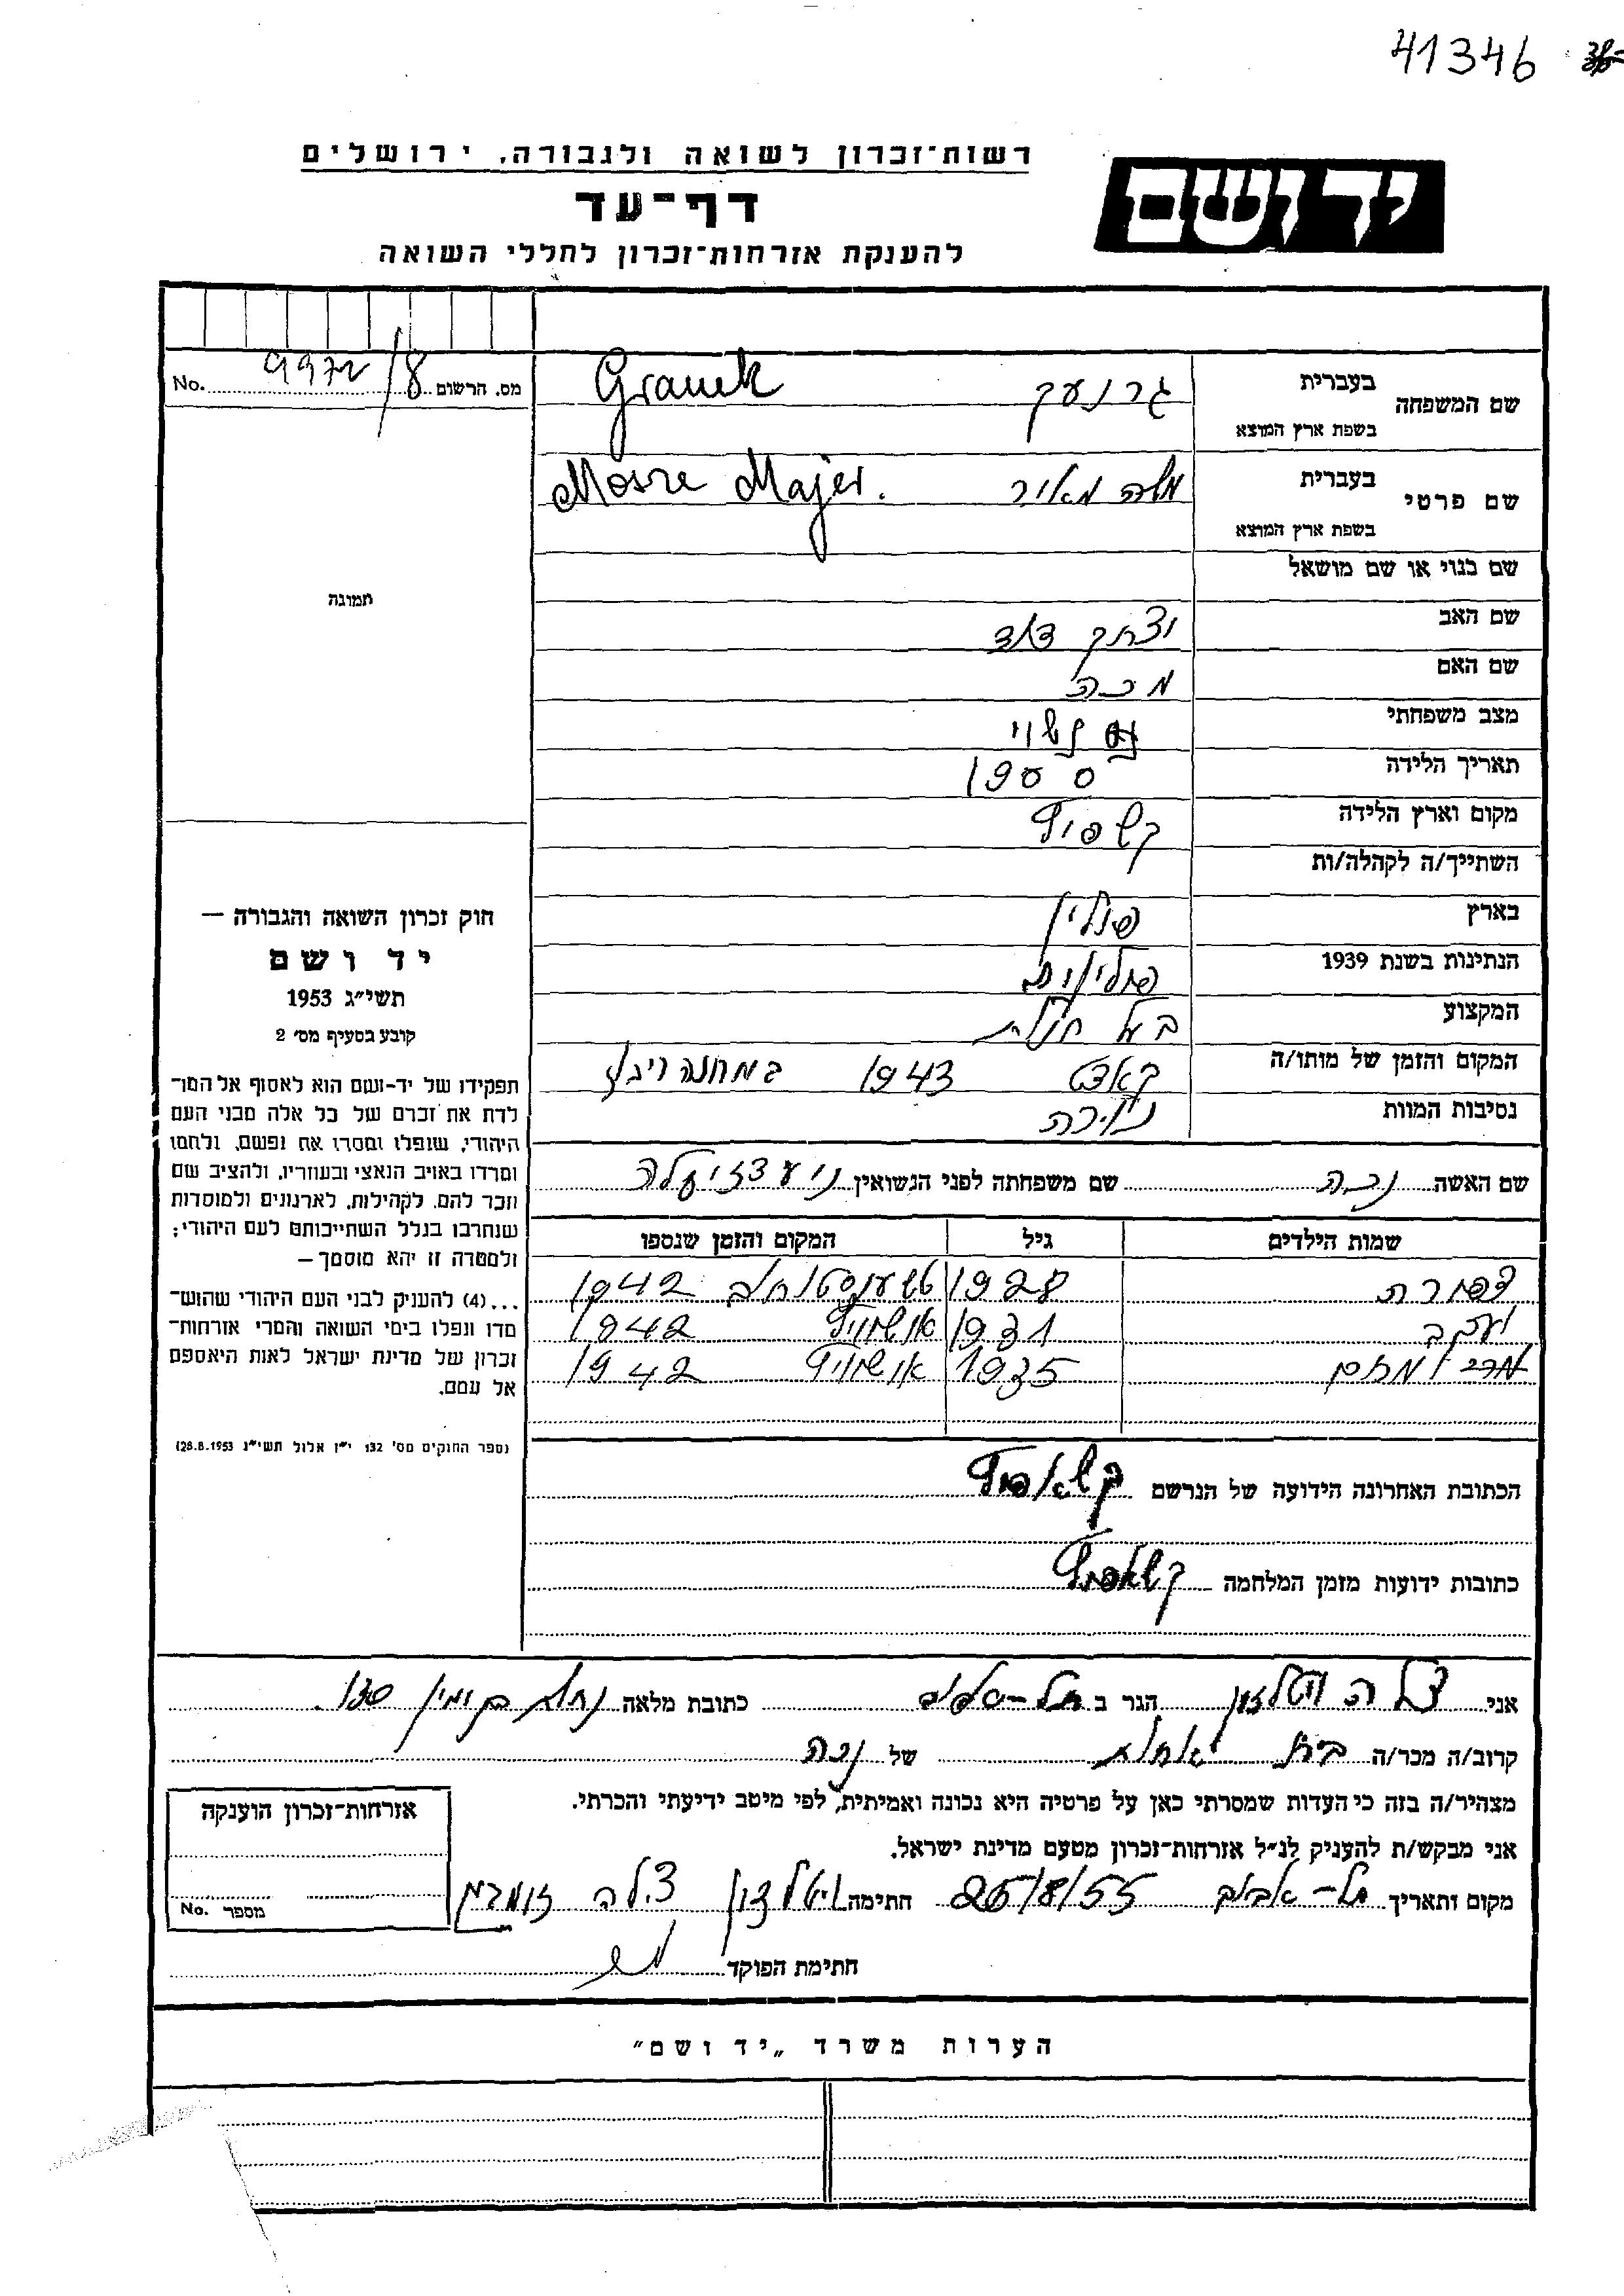 41346
רשות־זכרון לשואה ולגבורה, ירושלים
יד ושם
דף־עד
להענקת אזרחות־זכרון לחללי השואה
מס. הרשום 9972/8 No.
שם המשפחה בעברית גרנעק Granek
בשפת ארץ המוצא
שם פרטי בעברית משה מאיר Mosze Majer.
בשפת ארץ המוצא
שם כנוי או שם מושאל
תמונה
שם האב יצחק דוד
שם האם
מצב משפחתי נשוי
תאריך הלידה 1900
מקום וארץ הלידה קשפיץ
השתייך/ה לקהלה/ות
בארץ פולין
הנתינות בשנת 1939 פולינית
המקצוע בעל חנות
המקום והזמן של מותו/ה 1943 במחנה
נסיבות המוות
שם האשה שם משפחתה לפני הנשואין
שמות הילדים גיל המקום והזמן שנספו
צפורה 1928 טשענסטוחוב 1942
יעקב 1931 אושוויץ 1942
1935 אושוויץ 1942
הכתובת האחרונה הידועה של הנרשם קשאפיץ
כתובות ידועות מזמן המלחמה קשאפיץ
חוק זכרון השואה והגבורה —
יד ושם
תשי״ג 1953
קובע בסעיף מס׳ 2
תפקידו של יד-ושם הוא לאסוף אל המו־
לדת את זכרם של כל אלה מבני העם
היהודי, שנפלו ומסרו את נפשם, נלחמו
ומרדו באויב הנאצי ובעוזריו, ולהציב שם
וזכר להם, לקהילות, לארגונים ולמוסדות
שנחרבו בגלל השתייכותם לעם היהודי;
ולמטרה זו יהא מוסמך —
...(4) להענيق לבני העם היהודי שהוש־
מדו ונפלו בימי השואה והמרי אזרחות־
זכרון של מדינת ישראל לאות היאספם
אל עמם.
(ספר החוקים מס׳ 132 י״ז אלול תשי״ג 28.8.1953)
אני צלה הגר ב תל-אביב כתובת מלאה נחלת בנימין 130.
קרוב/ה מכר/ה של
מצהיר/ה בזה כי העדות שמסרתי כאן על פרטיה היא נכונה ואמיתית, לפי מיטב ידיעתי והכרתי.
אני מבקש/ת להעניק לנ״ל אזרחות־זכרון מטעם מדינת ישראל.
מקום ותאריך תל-אביב 25/8/55 חתימה צלה
חתימת הפוקד
אזרחות־זכרון הוענקה
מספר No.
הערות משרד „יד ושם״